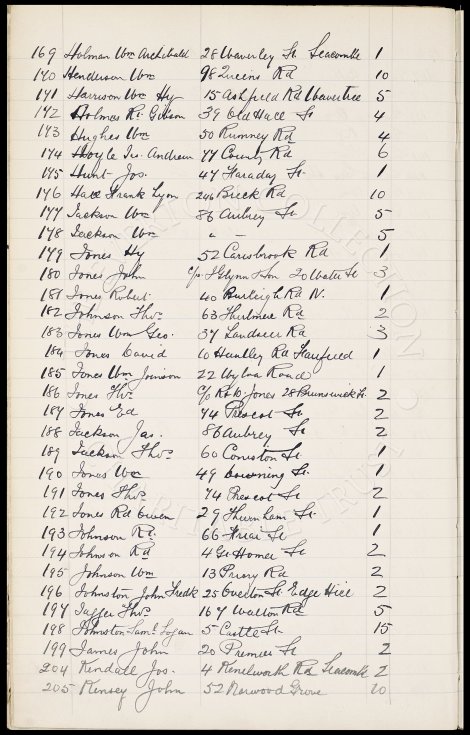 169 Holman Wm Archibald 28 Waverley St Seacombe 1
170 Henderson Wm 98 Queens Rd 10
171 Harrison Wm Hy 15 Ashfield Rd Wavertree 5
172 Holmes Rt Gibson 39 Old Hall St 4
173 Hughes Wm 50 Rumney Rd 4
174 Hoyle Jas. Andrew 77 County Rd 6
175 Hunt Jos. 47 Faraday St 1
176 Hall Frank Lyon 246 Breck Rd 10
177 Jackson Wm 86 Aubrey St 5
178 Jackson Wm " - 5
179 Jones Hy 52 Caresbrook Rd 1
180 Jones John c/o J Glynn & Son 20 Water St 3
181 Jones Robert 40 Burleigh Rd N. 1
182 Johnson Thos 63 Rd 2
183 Jones Wm Geo. 37 Landseer Rd 3
184 Jones David 10 Huntley Rd Fairfield 1
185 Jones Wm 22 Road 1
186 Jones Thos c/o Jones 28 Brunswick St. 2
187 Jones Ed 74 Prescot St 2
188 Jackson Jas. 86 Aubrey St 2
189 Jackson Thos 60 Coniston St 1
190 Jones Wm 49 Downing St 1
191 Jones Thos 74 Prescot St 2
192 Jones Rd Owen 29 Thurnham St. 1
193 Johnson Rt. 66 Friar St 1
194 Johnson Rd 4 Gt Homer St 2
195 Johnson Wm 13 Priory Rd 2
196 Johnston John Fredk 25 Overton St Edge Hill 2
197 Jagger Thos 167 Walton Rd 5
198 Johnston Saml Logan 5 Castle St. 15
199 James John 20 Premier St 2
204 Kendall Jos. 4 Kenelworth Rd Seacombe 2
205 Kensey John 52 Norwood Grove 10